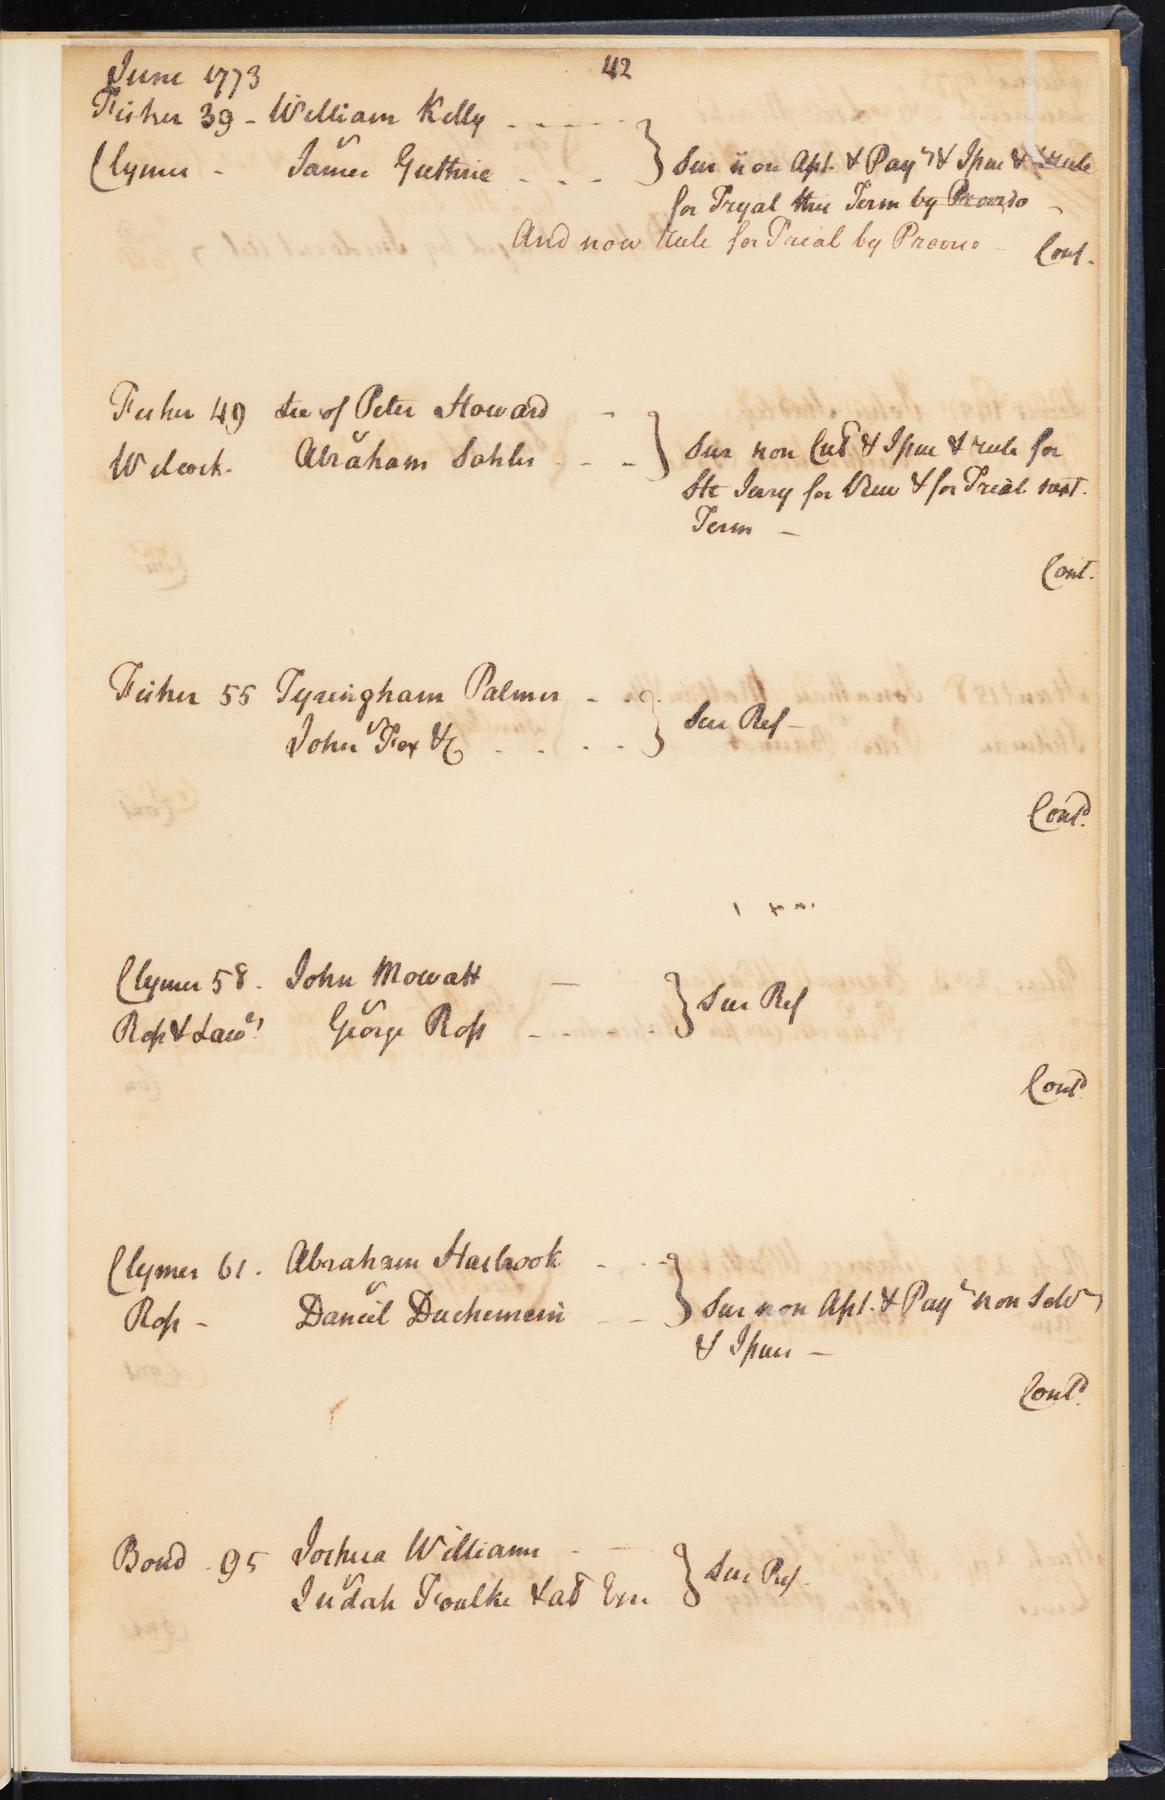 June 1773 42
Fisher 39 - William Kelly
Clymer - v James Guthrie } Sur non Apt. & Pay & Issue & Rule
for Tryal this Term by Proviso
And now rule for Trial by Proviso Cont.
Fisher 49 Lee of Peter Howard
Wilcock. v Abraham Sahler } Sur non Cul & Issue & rule for
Str Jury for View & for Trial next
Term -
Cont.
Fisher 55 Tyringham Palmer
v John Fox &c } Sur Ref -
Contd.
Clymer 58. John Mowatt
Ross & Law v George Ross } Sur Ref
Contd
Clymer 61. Abraham Hasbrook
Ross - v Daniel Duchemein } Sur non Apt. & Pay non Solv
& Issue -
Contd.
Bond 95 Joshua Williams
v Judah Foulke & al Exrs } Sur Ref.